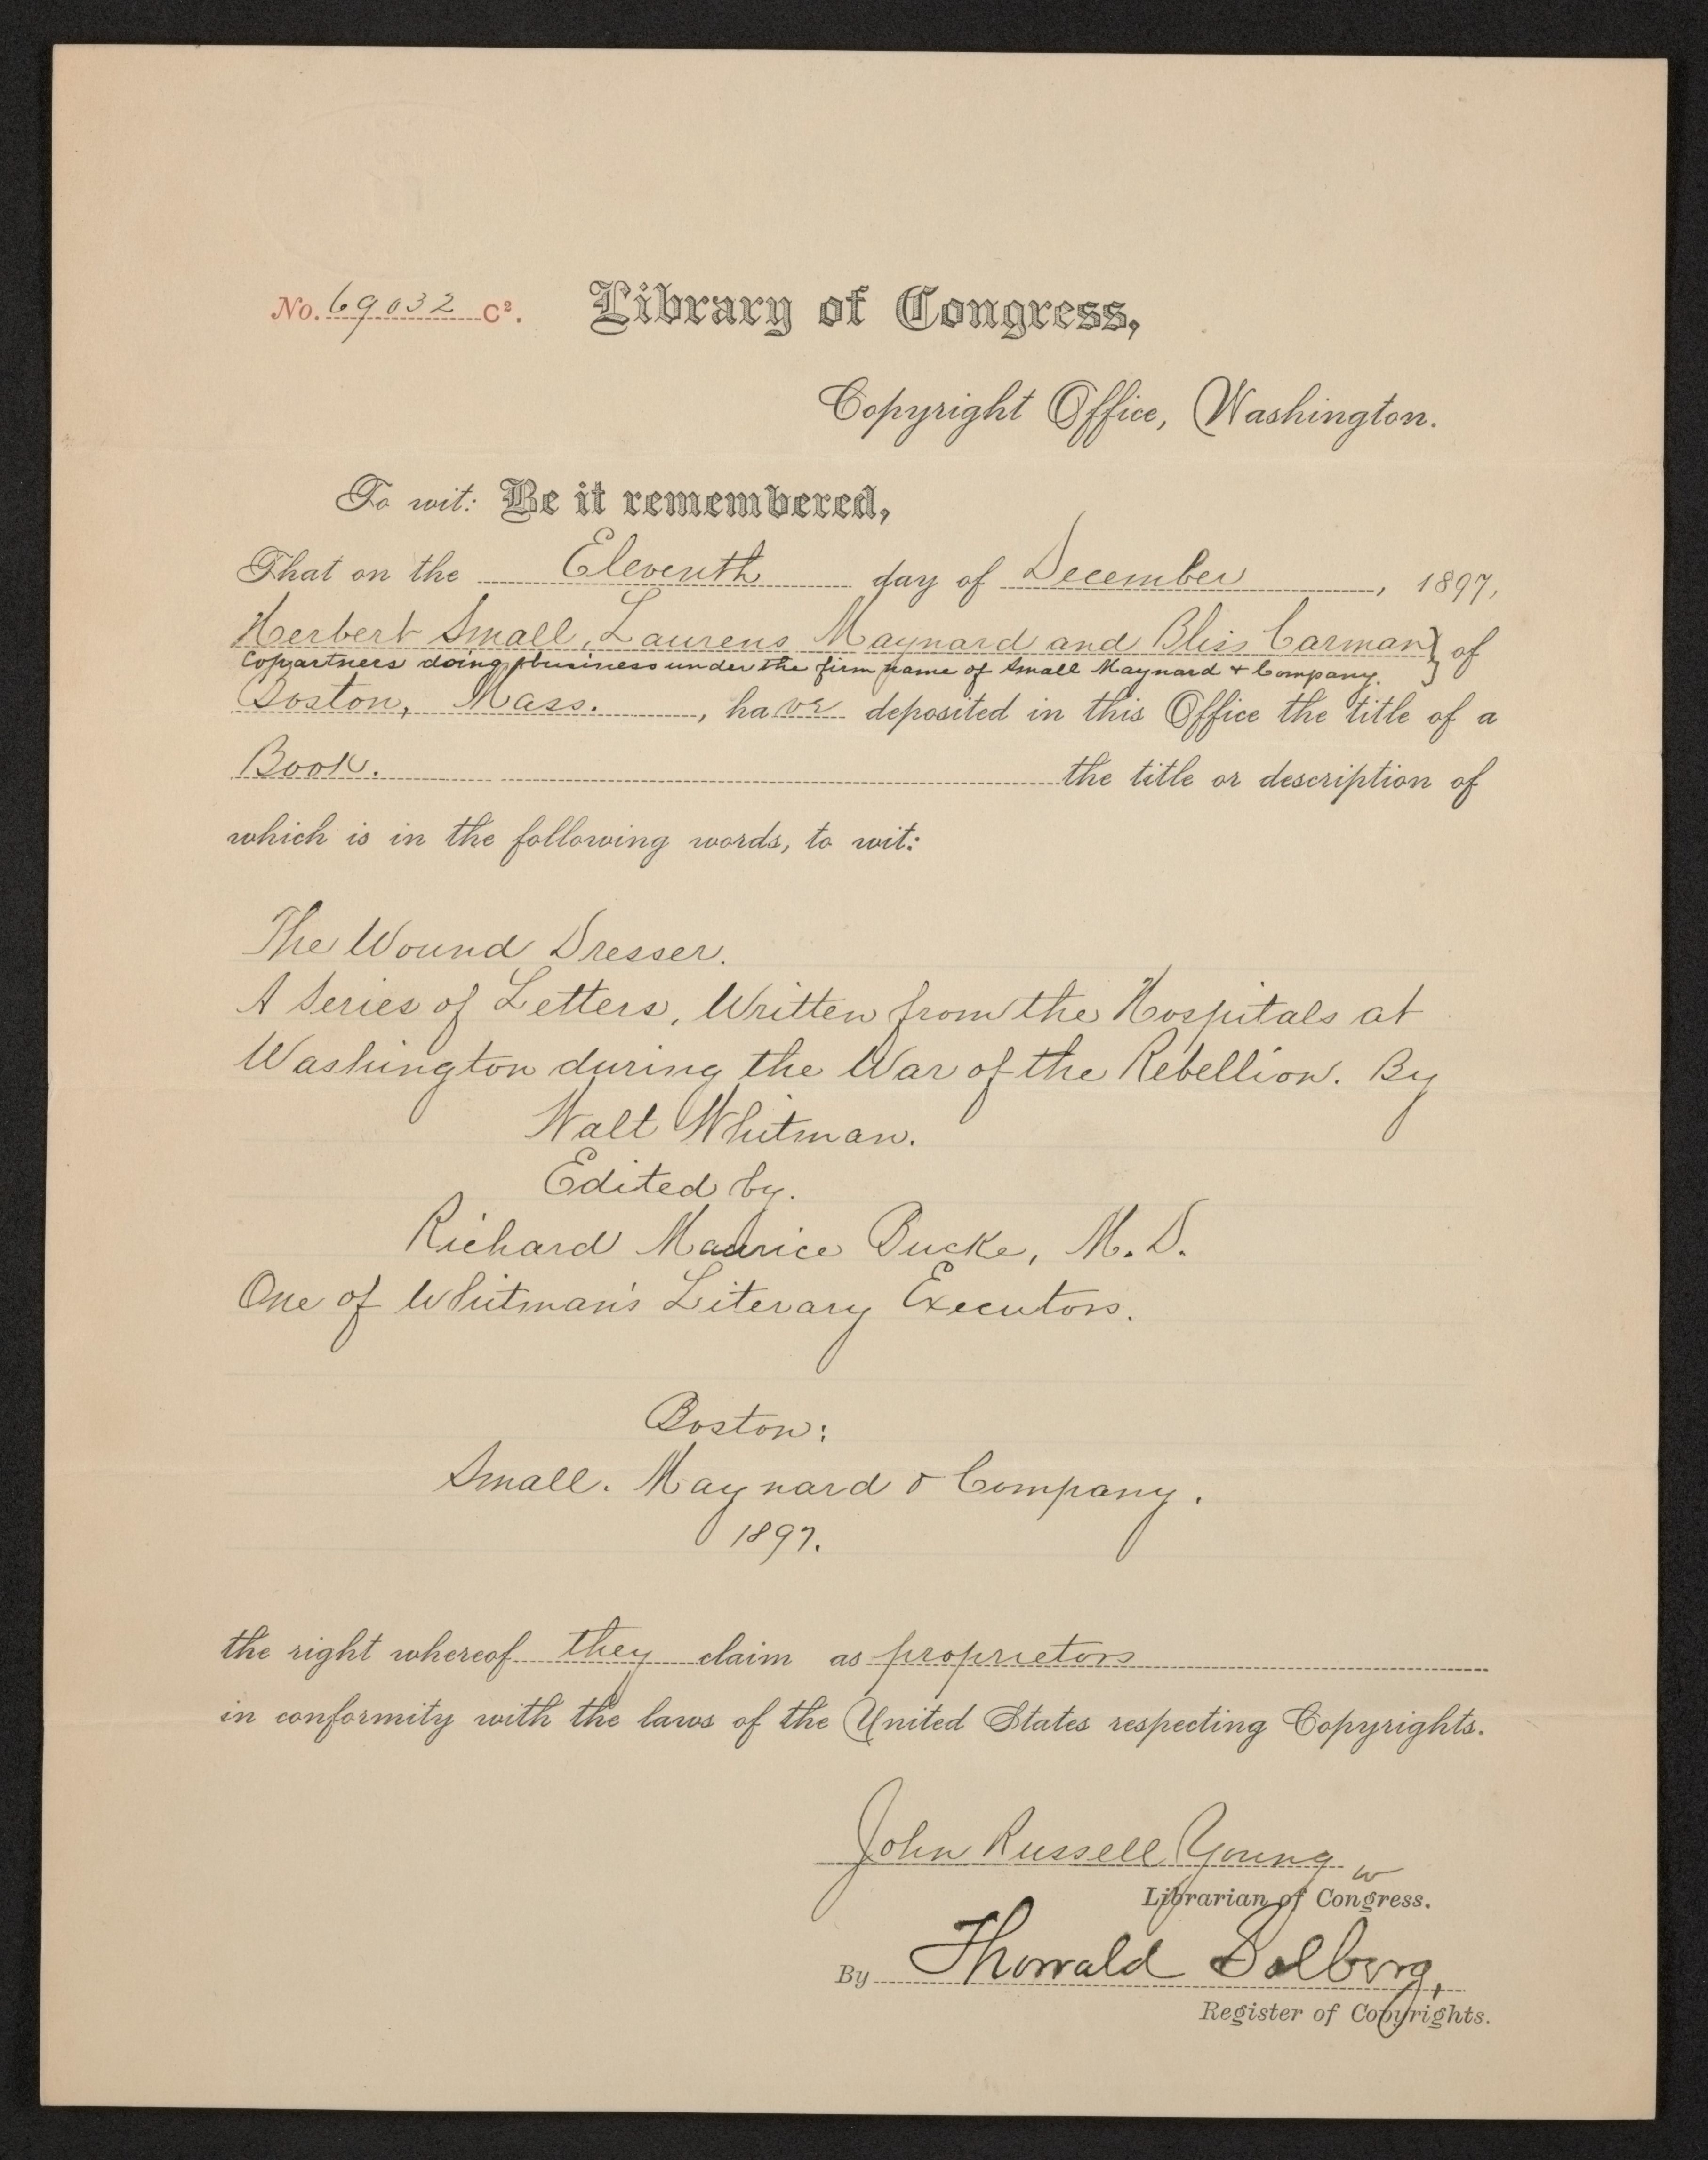 No. 69032 C². Library of Congress,
Copyright Office, Washington.
To wit: Be it remembered,
That on the Eleventh day of December, 1897,
Herbert Small, Laurens Maynard and Bliss Carman } of
Copartners doing business under the firm name of Small Maynard & Company.
Boston, Mass., have deposited in this Office the title of a
Book. the title or description of
which is in the following words, to wit:
The Wound Dresser.
A Series of Letters, Written from the Hospitals at
Washington during the War of the Rebellion. By
Walt Whitman.
Edited by.
Richard Maurice Bucke, M. D.
One of Whitman's Literary Executors.
Boston:
Small. Maynard & Company.
1897.
the right whereof they claim as proprietors
in conformity with the laws of the United States respecting Copyrights.
John Russell Young
Librarian of Congress.
By Thorvald Solberg,
Register of Copyrights.